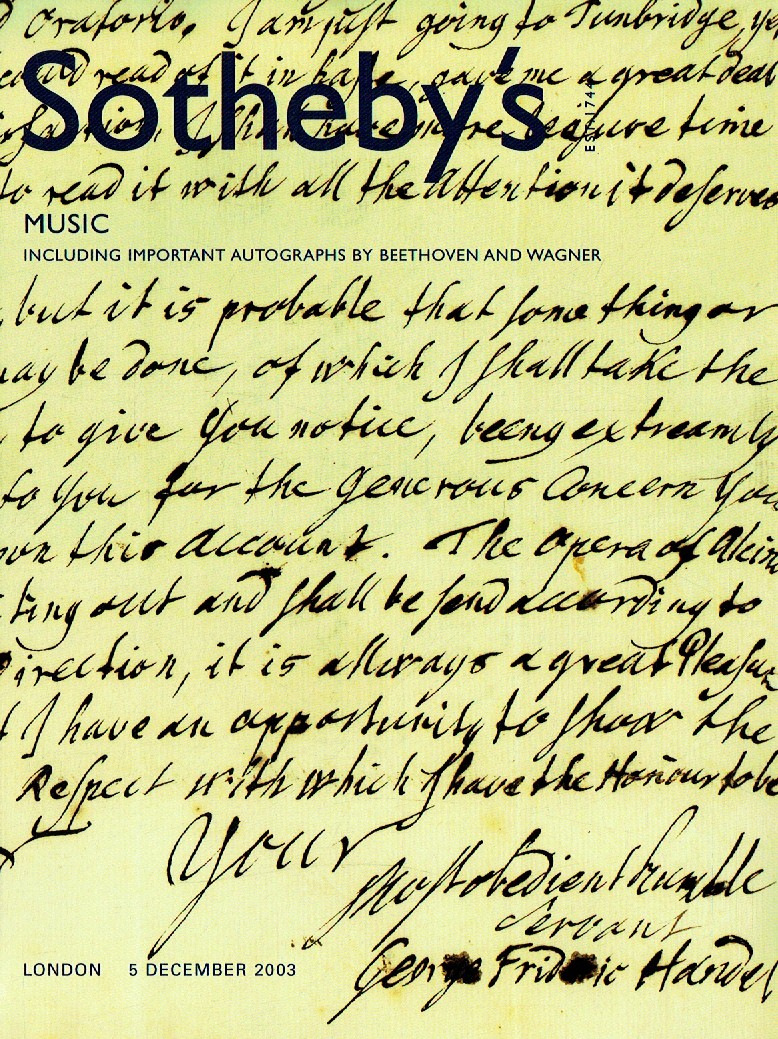 Oratorio, I am just going to Tunbridge, ye
could read of it in haste, gave me a great deal
isfaction. I shall have more leasure time
to read it with all the Attention it deserves
Sotheby's
EST. 1744
MUSIC
INCLUDING IMPORTANT AUTOGRAPHS BY BEETHOVEN AND WAGNER
but it is probable that some thing or
may be done, of which I shall take the
to give You notice, beeng extreamly
to You for the generous Concern You
on this account. The Opera of Alcin
ting out and shall be send according to
Direction, it is allways a great Pleasur
I have an opportunity to show the
Respect with which I have the Honour to be
Your
Most obedient humble
Servant
George Frideric Handel
LONDON 5 DECEMBER 2003